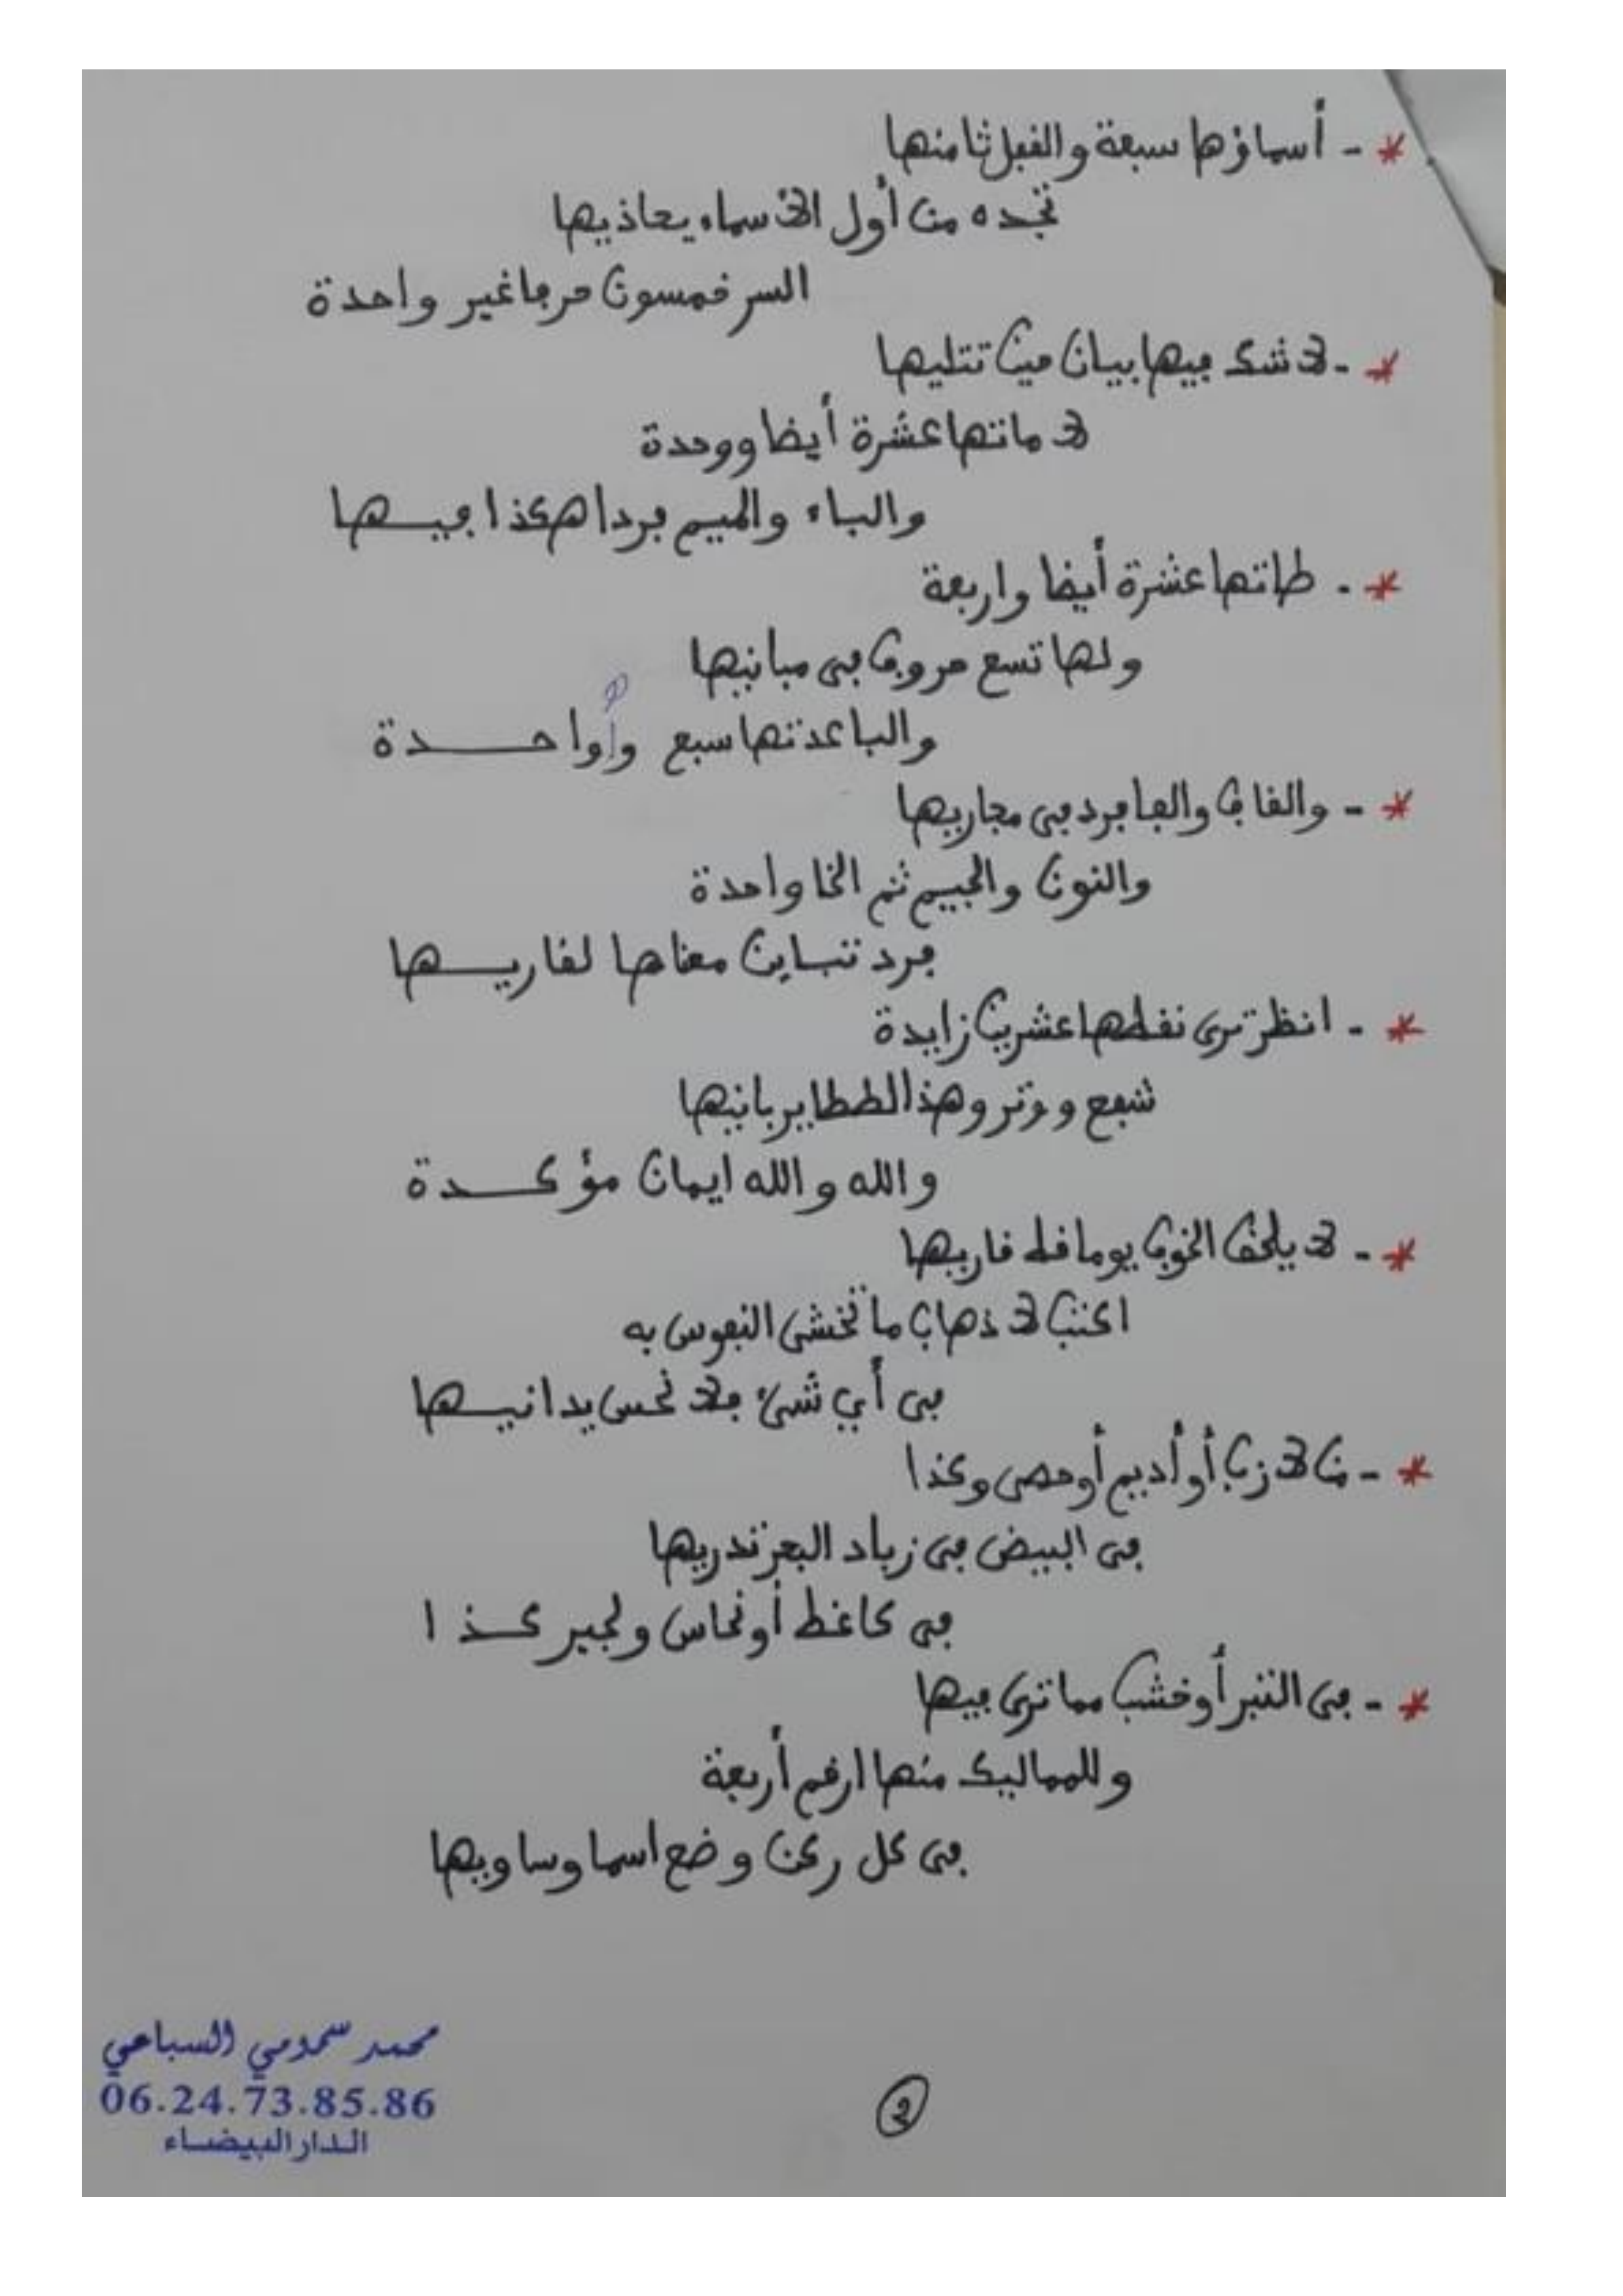 * - أسماؤها سبعة والقبل ثامنها
تجده من أول الاسماء يحاذيها
السر خمسون حرفا غير واحدة
* - لا شك فيها بيان حين تتليها
لا ماتها عشرة أيضا ووحدة
والباء والميم فردا هكذا فيـــها
* - طاتها عشرة أيضا واربعة
ولها تسع حروف في مبانيها
والبا عدتها سبع وأواحـــدة
* - والقاف والفا فرد في مجاريها
والنون والجيم ثم الخا واحدة
فرد تباين معناها لقاريـــها
* - انظر ترى نقطها عشرين زايدة
شفع ووتر وهذا لططا يربانيها
والله والله ايمان مؤكـــدة
* - لا يلحق الخوف يوما قط قاريها
اكتب لا ذهاب ما تخشى النفوس به
في أي شيء فلا نحس يدانيـــها
* - من لا زب أو أديم أو حصى وكذا
في البيض في زباد البحر ندريها
في كاغط أو نحاس ولجير كـــذا
* - في التبر أو خشب مما ترى فيها
وللمماليك منها ارقم أربعة
في كل ركن وضع اسما وساويها
محمد سمومي السباعي
06.24.73.85.86
الدار البيضاء
2